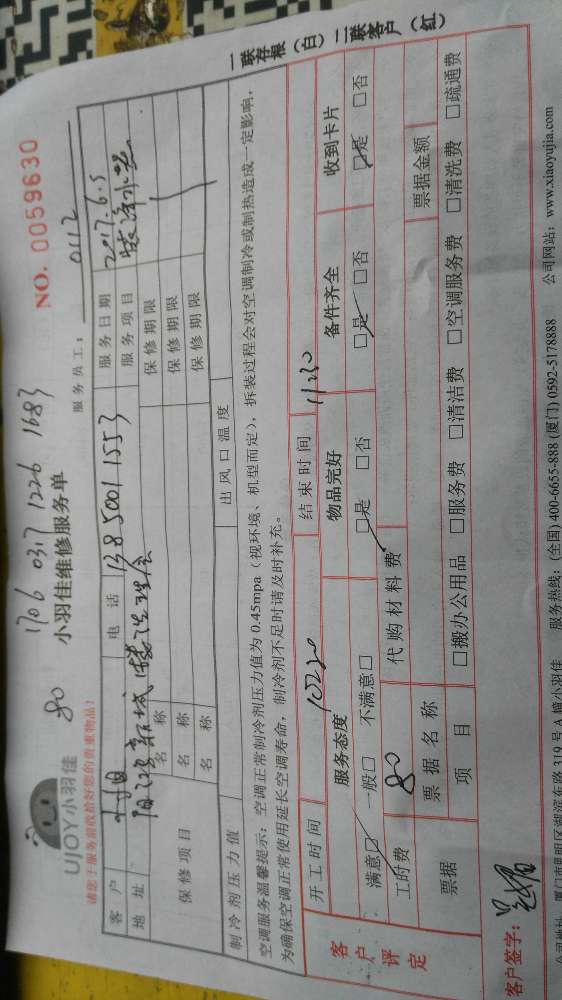 1706 0317 1226 1683
NO. 0059630
UJOY小羽佳
80
小羽佳维修服务单
请您于服务前收拾好您的贵重物品!
服务员工: 0112
客户
电话 13850011553
服务日期 2017.6.5
地址
服务项目
保修项目
名称
保修期限
名称
保修期限
名称
保修期限
制冷剂压力值
出风口温度
空调服务温馨提示: 空调正常制冷剂压力值为0.45mpa (视环境、机型而定), 拆装过程会对空调制冷或制热造成一定影响,
为确保空调正常使用延长空调寿命, 制冷剂不足时请及时补充。
一联存根 (白) 二联客户 (红)
客户评定
开工时间 10220
结束时间 11:30
服务态度
物品完好
备件齐全
收到卡片
满意□ 一般□ 不满意□
□是 □否
□是 □否
□是 □否
工时费 80
代购材料费
票据
票据名称
票据金额
项目
□搬办公用品 □服务费 □清洁费 □空调服务费 □清洗费 □疏通费
客户签字:
公司地址: 厦门市思明区湖滨东路319号A幢小羽佳 服务热线: (全国) 400-6655-888 (厦门) 0592-5178888 公司网站: www.xiaoyujia.com